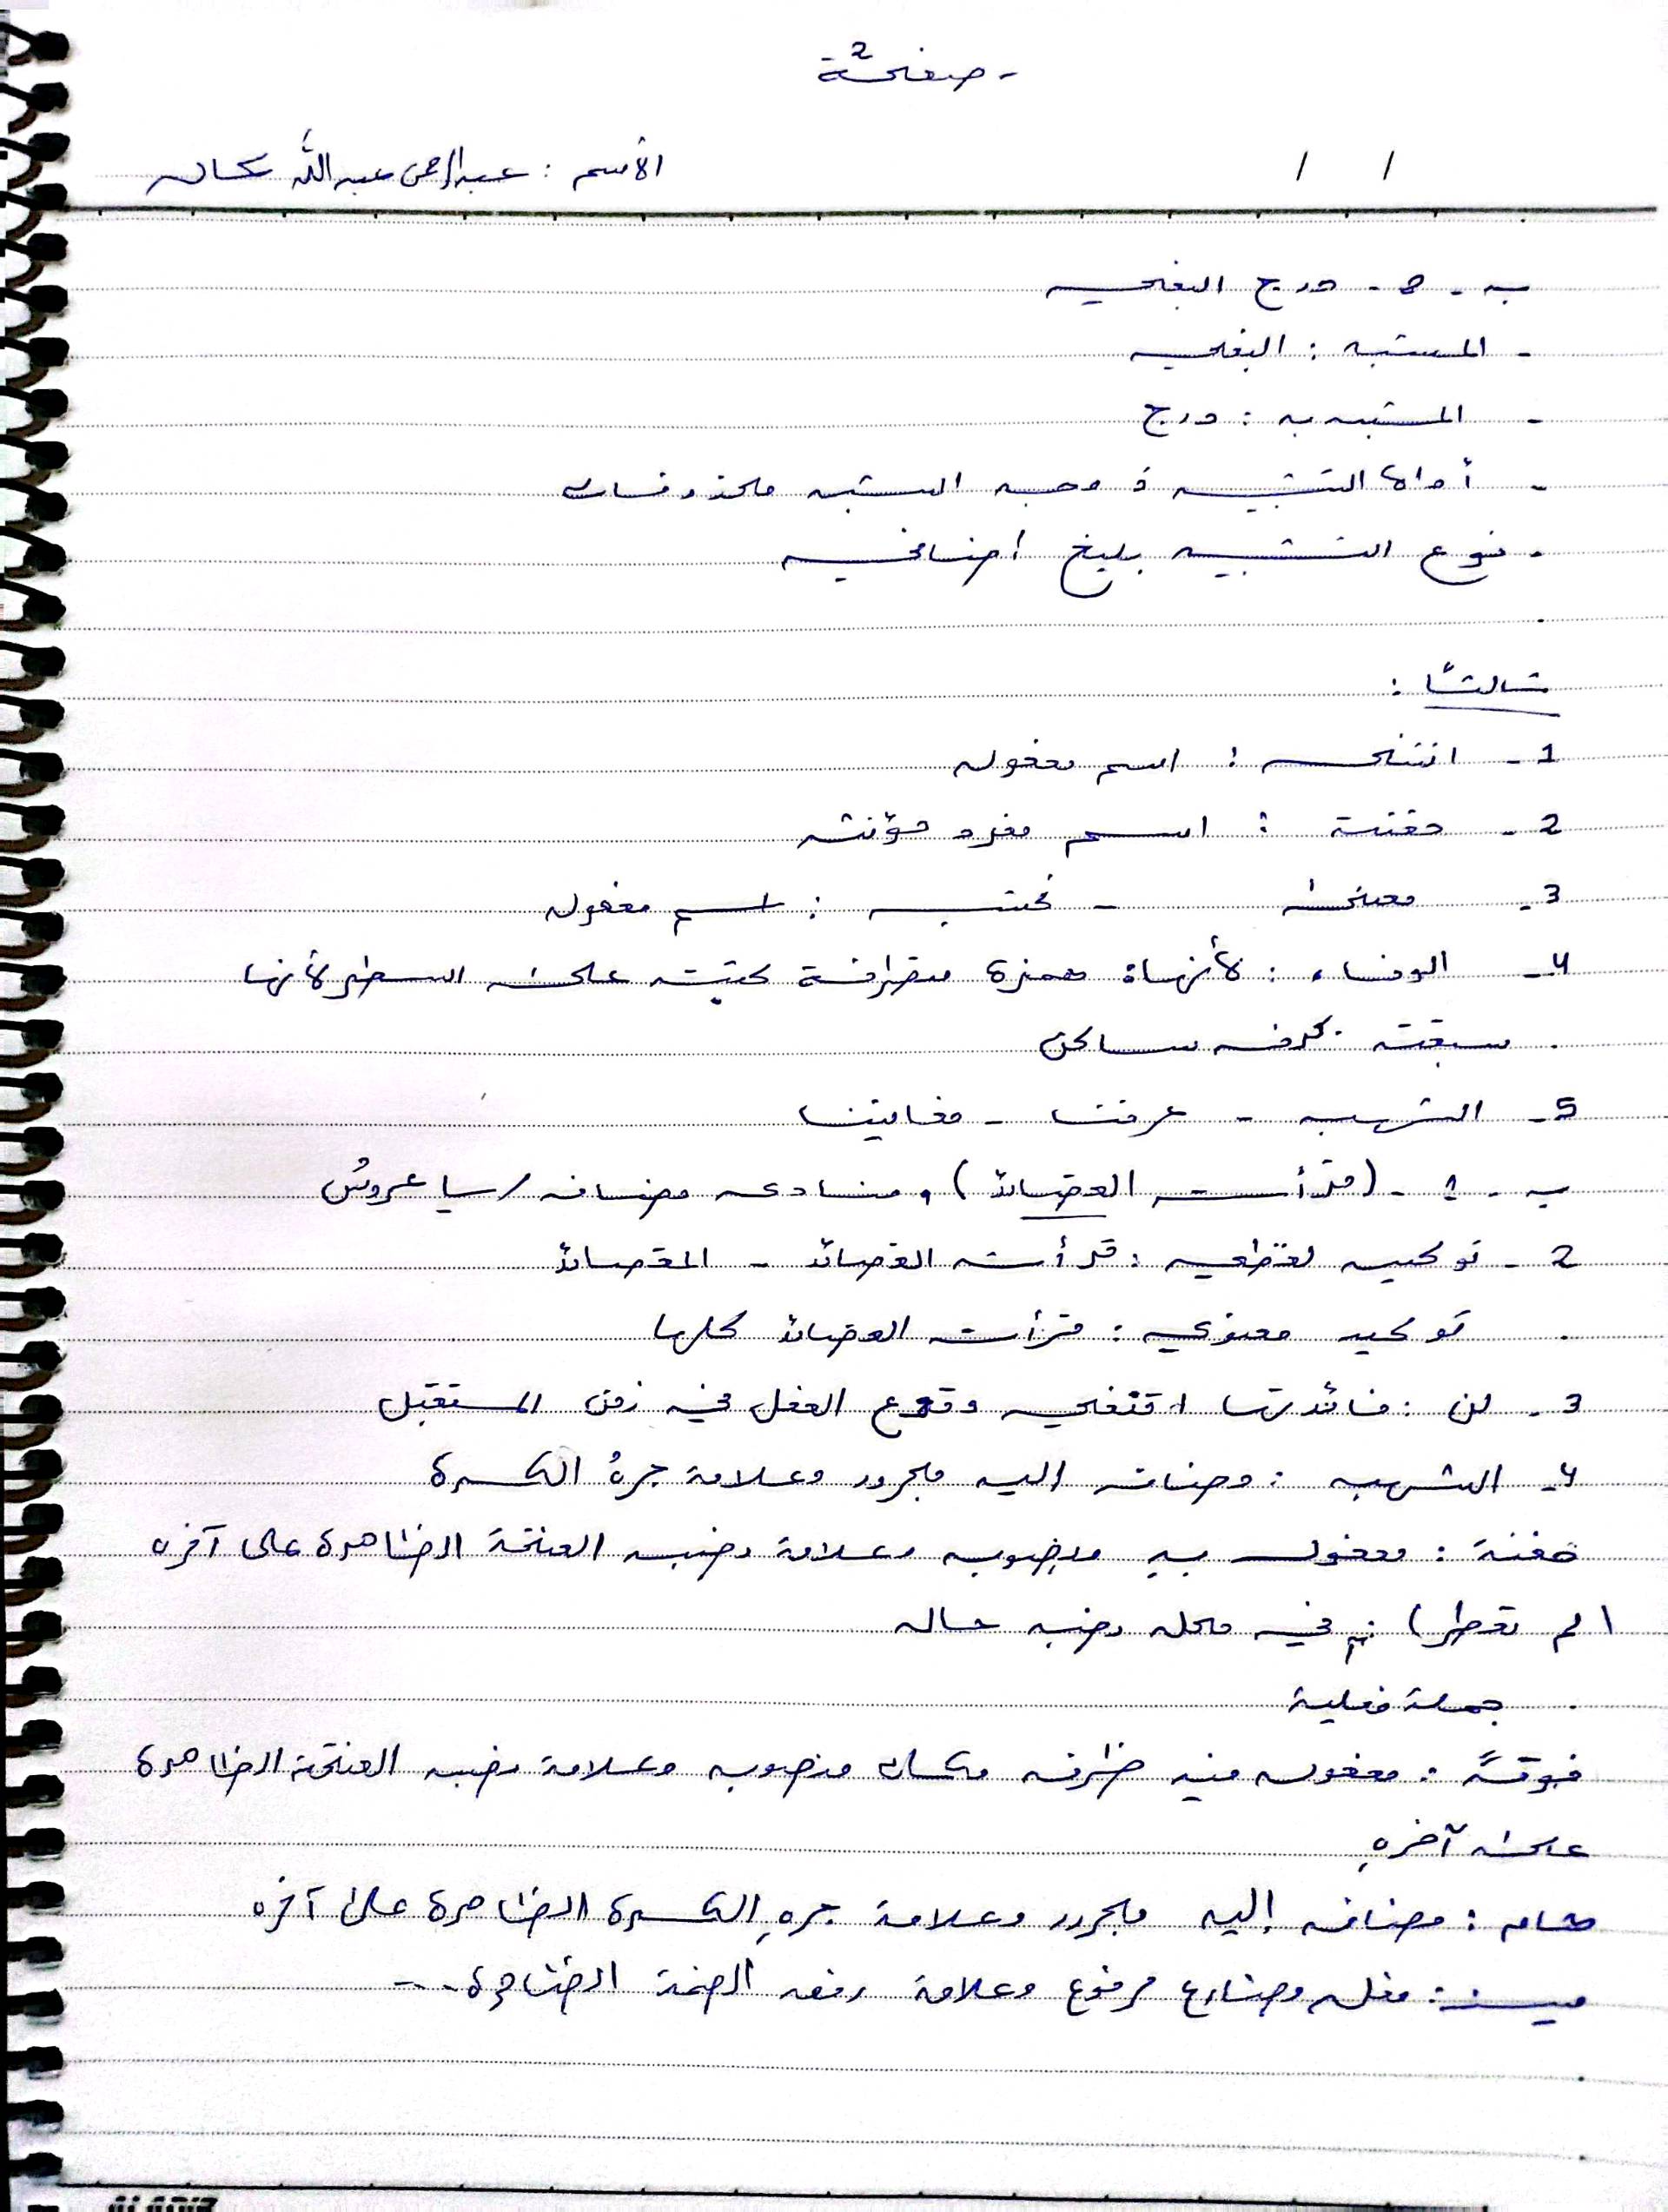 - صفحة 2
الاسم : عبد الرحمن عبد الله / /
ب - 5 - درج
- المشبه :
- المشبه به : درج
- أداة التشبيه و وجه الشبه محذوفان
- نوع التشبيه بليغ اضافي
ثالثًا :
1 - : اسم مفعول
2 - حفنة : اسم مفرد مؤنث
3 - - : اسم مفعول
4 - الوضاء : لأنها همزة متطرفة كتبت على السطر لأنها
سبقت بحرف ساكن
5 - الشهب - عرفنا -
ب - 1 - (قرأت القصائد) ، منادى مضاف / يا عروسُ
2 - توكيد لفظي : قرأت القصائد - القصائد
توكيد معنوي : قرأت القصائد كلها
3 - لن : فائدتها وقوع الفعل في زمن المستقبل
4 - الشهب : مضاف إليه مجرور وعلامة جرهُ الكسرة
حفنة : مفعول بهِ منصوب وعلامة نصبه الفتحة الظاهرة على آخره
(لم ) : في محل نصب حال
جملة فعلية
فوقَ : مفعول فيه ظرف مكان منصوب وعلامة نصبه الفتحة الظاهرة
على آخرهِ
: مضاف إليه مجرور وعلامة جرهِ الكسرة الظاهرة على آخره
: فعل مضارع مرفوع وعلامة رفعه الضمة الظاهرة ...